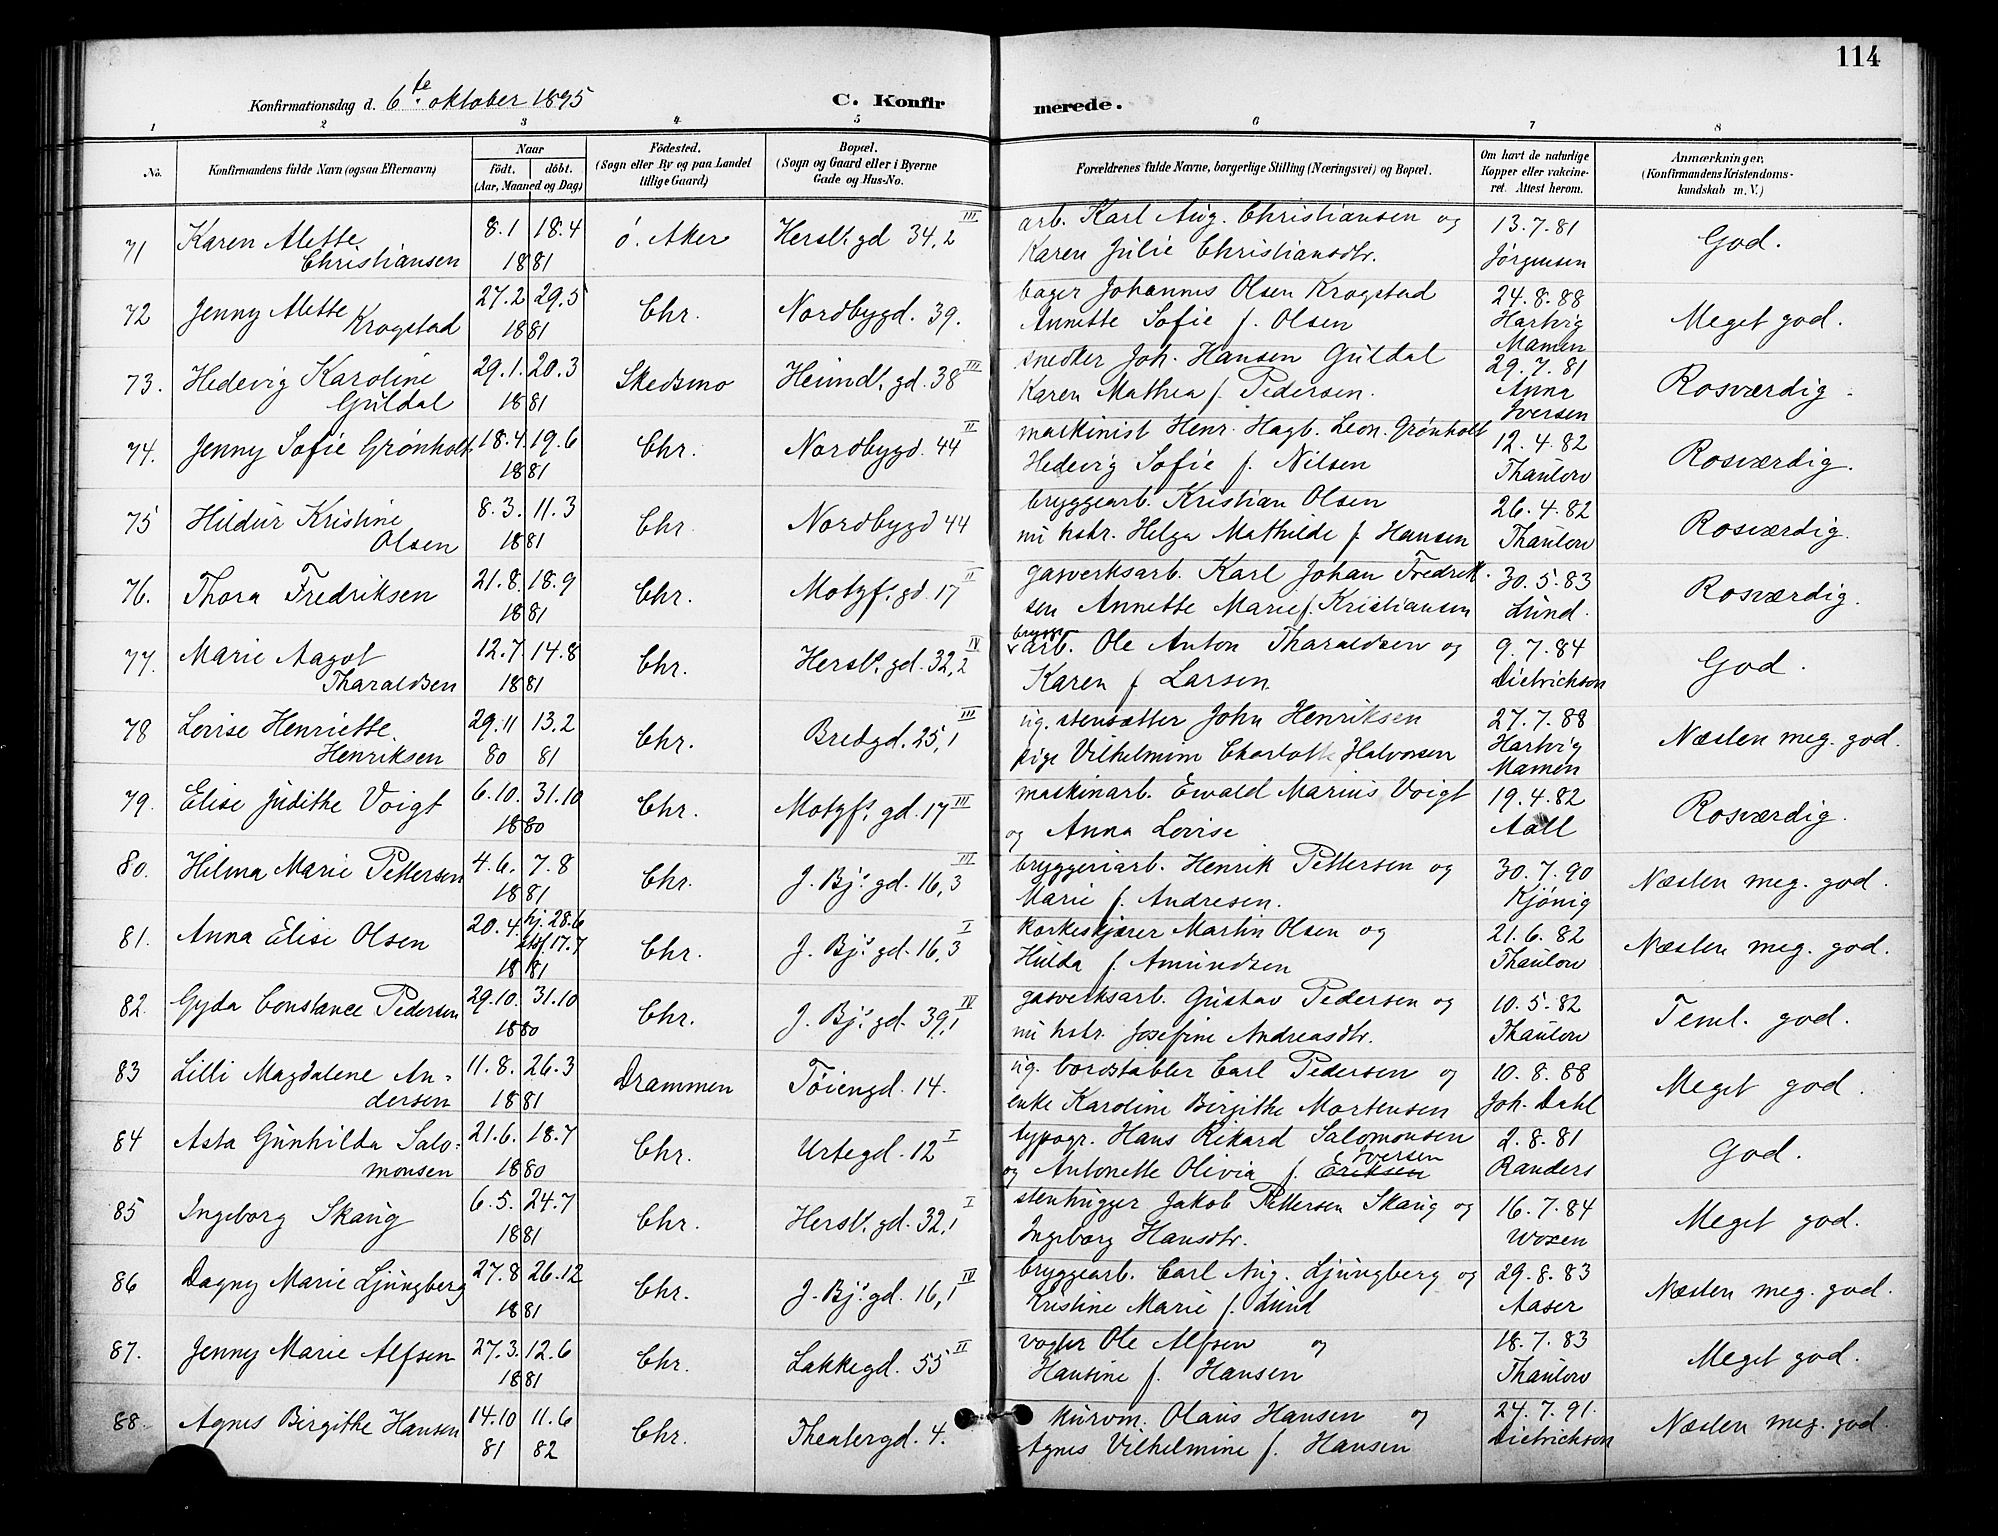 114
Konfirmationsdag d. 6te oktober 1895 C. Konfirmerede.
1 2 3 4 5 6 7 8
No. Konfirmandens fulde Navn (ogsaa Efternavn) Naar födt. döbt. (Aar, Maaned og Dag) Födested. (Sogn eller By og paa Landet tillige Gaard) Bopæl. (Sogn og Gaard eller i Byerne Gade og Hus-No. Forældrenes fulde Navne, borgerlige Stilling (Næringsvei) og Bopæl. Om havt de naturlige Kopper eller vakcineret. Attest herom. Anmærkninger, (Konfirmandens Kristendomskundskab m. V.)
71 Karen Alette Christiansen 8.1 18.4 1881 ö. Aker Hersl. gd 34,2 III arb. Karl Aug. Christiansen og Karen Julie Christiansdtr. 13.7.81 Jørgensen God.
72 Jenny Alette Krogstad 27.2 29.5 1881 Chr. Nordbygd. 39. bager Johannes Olsen Krogstad Annette Sofie f. Olsen 24.8.88 Hartvig Mamen Meget god.
73. Hedevig Karoline Guldal 29.1. 20.3 1881 Skedsmo Heimdl. gd. 38 III snedker Joh. Hansen Guldal Karen Mathea f. Pedersen. 29.7.81 Anna Iversen Rosværdig.
74. Jenny Sofie Grønholt 18.4. 19.6 1881 Chr. Nordbygd. 44 II maskinist Henr. Hagb. Leon. Grønholt Hedevig Sofie f. Nilsen 12.4.82 Thaulow Rosværdig.
75 Hildur Kristine Olsen 8.3. 11.3 1881 Chr. Nordbygd 44 bryggearb. Kristian Olsen nu hstr. Helga Mathilde f. Hansen 26.4.82 Thaulow Rosværdig.
76. Thora Fredriksen 21.8. 18.9 1881 Chr. Motzf. gd. 17 II gasverksarb. Karl Johan Fredriksen Annette Marie f. Kristiansen 30.5.83 Lund. Rosværdig.
77. Marie Aagot Tharaldsen 12.7 14.8 1881 Chr. Hersl. gd. 32,2 IV bryggearb. Ole Anton Tharaldsen og Karen f. Larsen 9.7.84 Dietrichson God.
78 Lovise Henriette Henriksen 29.11 80 13.2 81 Chr. Bredgd. 25,1 III ug. stensætter John Henriksen pige Vilhelmine Charlotte Halvorsen 27.7.88 Hartvig Mamen Næsten meg. god.
79. Elise Judithe Voigt 6.10. 31.10 1880 Chr. Motzfs gd. 17 III maskinarb. Ewald Marius Voigt og Anna Lovise 19.4.82 Aall Rosværdig.
80. Hilma Marie Pettersen 4.6. 7.8 1881 Chr. J. Bjs gd. 16,3 III bryggeriarb. Henrik Pettersen og Marie f. Andresen. 30.7.90 Kjönig Næsten meg. god.
81. Anna Elise Olsen 20.4. hj. 28.6 stsf. 17.7 1881 Chr. J. Bjs gd. 16,3 I korkeskjærer Martin Olsen og Hulda f. Amundsen 21.6.82 Thaulow Næsten meg. god.
82. Gyda Constance Pedersen 29.10. 31.10 1880 Chr. J. Bjs gd. 39,1 IV gasverksarb. Gustav Pedersen og nu hstr. Josefine Andreasdtr. 10.5.82 Thaulow Teml. god.
83 Lilli Magdalene Andersen 11.8. 26.3 1881 Drammen Töiengd. 14. ug. bordstabler Carl Pedersen og enke Karoline Birgithe Mortensen 10.8.88 Joh. Dahl Meget god.
84 Asta Gunhilda Salomonsen 21.6. 18.7 1880 Chr. Urtegd. 12 I typogr. Hans Rikard Salomonsen og Antonette Olivia f. Eriksen Iversen 2.8.81 Randers God.
85 Ingeborg Skaug 6.5. 24.7 1881 Chr. Hersl. gd. 32,1 I stenhugger Jakob Pettersen Skaug og Ingeborg Hansdtr. 16.7.84 Woxen Meget god.
86 Dagny Marie Ljungberg 27.8 26.12 1881 Chr. J. Bjs gd. 16,1 IV bryggearb. Carl Aug. Ljungberg og Kristine Marie f. Lund 29.8.83 Aaser Næsten meg. god.
87. Jenny Marie Alfsen 27.3. 12.6 1881 Chr. Lakkegd. 55 II vogter Ole Alfsen og Hansine f. Hansen 18.7.83 Thaulow Meget god.
88. Agnes Birgithe Hansen 14.10 81 11.6 82 Chr. Theatergd. 4. murvm. Olaus Hansen og Agnes Vilhelmine f. Hansen 24.7.91. Dietrichson Næsten meg. god.